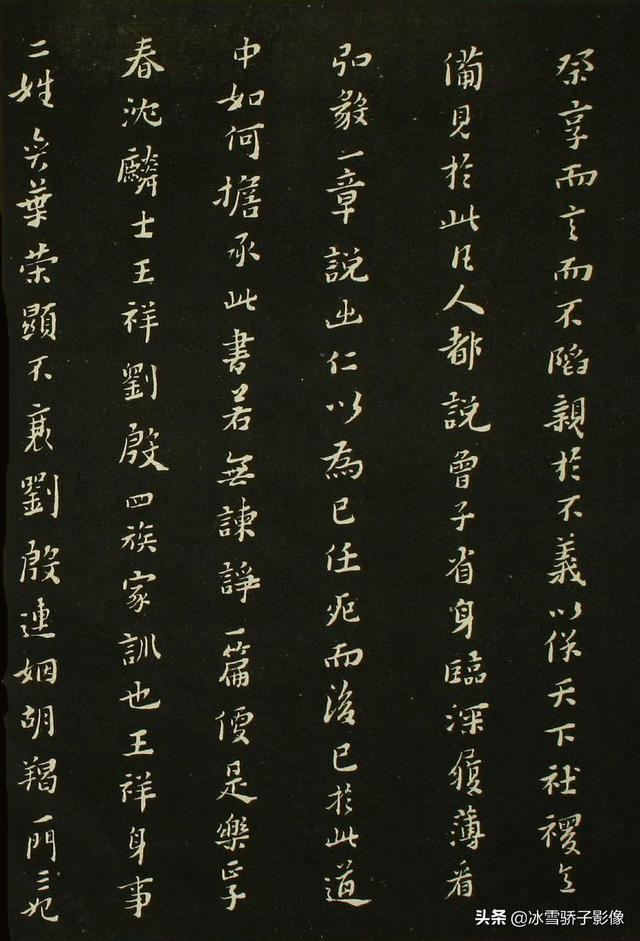 祭享而言而不陷親於不義以保天下社稷
備見於此凡人都說曾子省身臨深履薄看
弘毅一章說出仁以為己任死而後已於此道
中如何擔承此書若無諫諍一篇便是樂正子
春沈麟士王祥劉殷四族家訓也王祥身事
二姓奕葉榮顯不衰劉殷連姻胡羯一門三妃
头条 @冰雪骄子影像